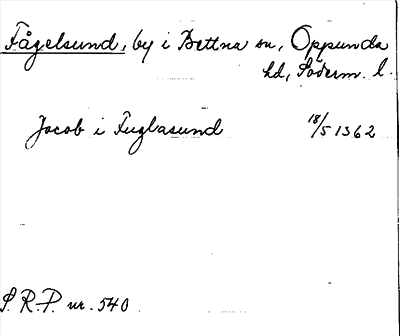 Fågelsund, by i Bettna sn, Oppunda
hd, Söderm. l.
Jacob i Fuglasund 18/5 1362
S.R.P. nr. 540